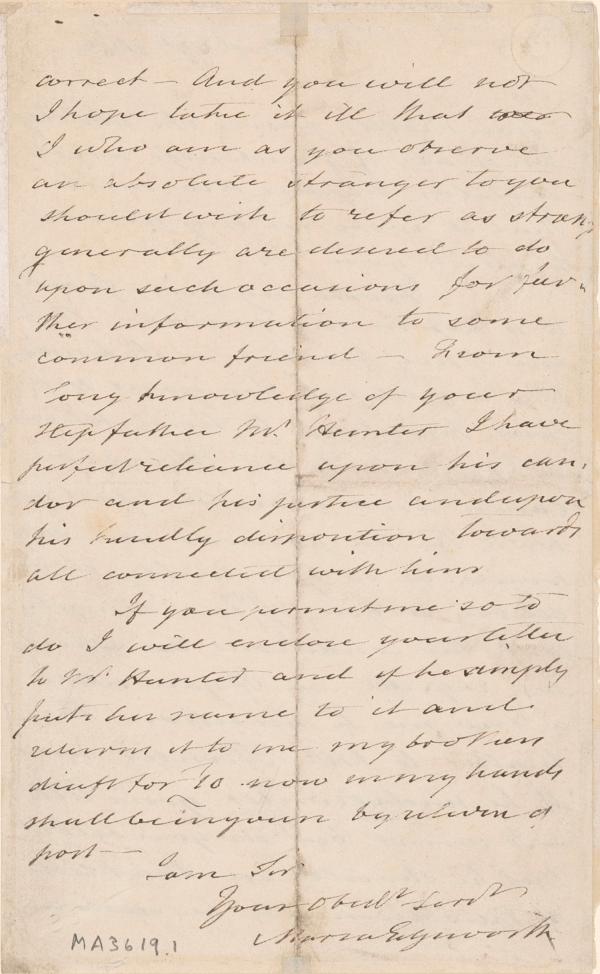 correct — And you will not
I hope take it ill that
I who am as you observe
an absolute stranger to you
should wish to refer as strang
generally are desired to do
upon such occasions for fur-
ther information to some
common friend — From
long knowledge of your
stepfather Mr. Hunter I have
perfect reliance upon his can-
dor and his justice and upon
his kindly disposition towards
all connected with him
If you permit me so to
do I will enclose your letter
to Mr. Hunter and if he simply
puts his name to it and
returns it to me my broken
draft for 10 now in my hands
shall be in yours by return of
post —
I am Sir
Your Obedt. Servt.
Maria Edgeworth
MA3619.1